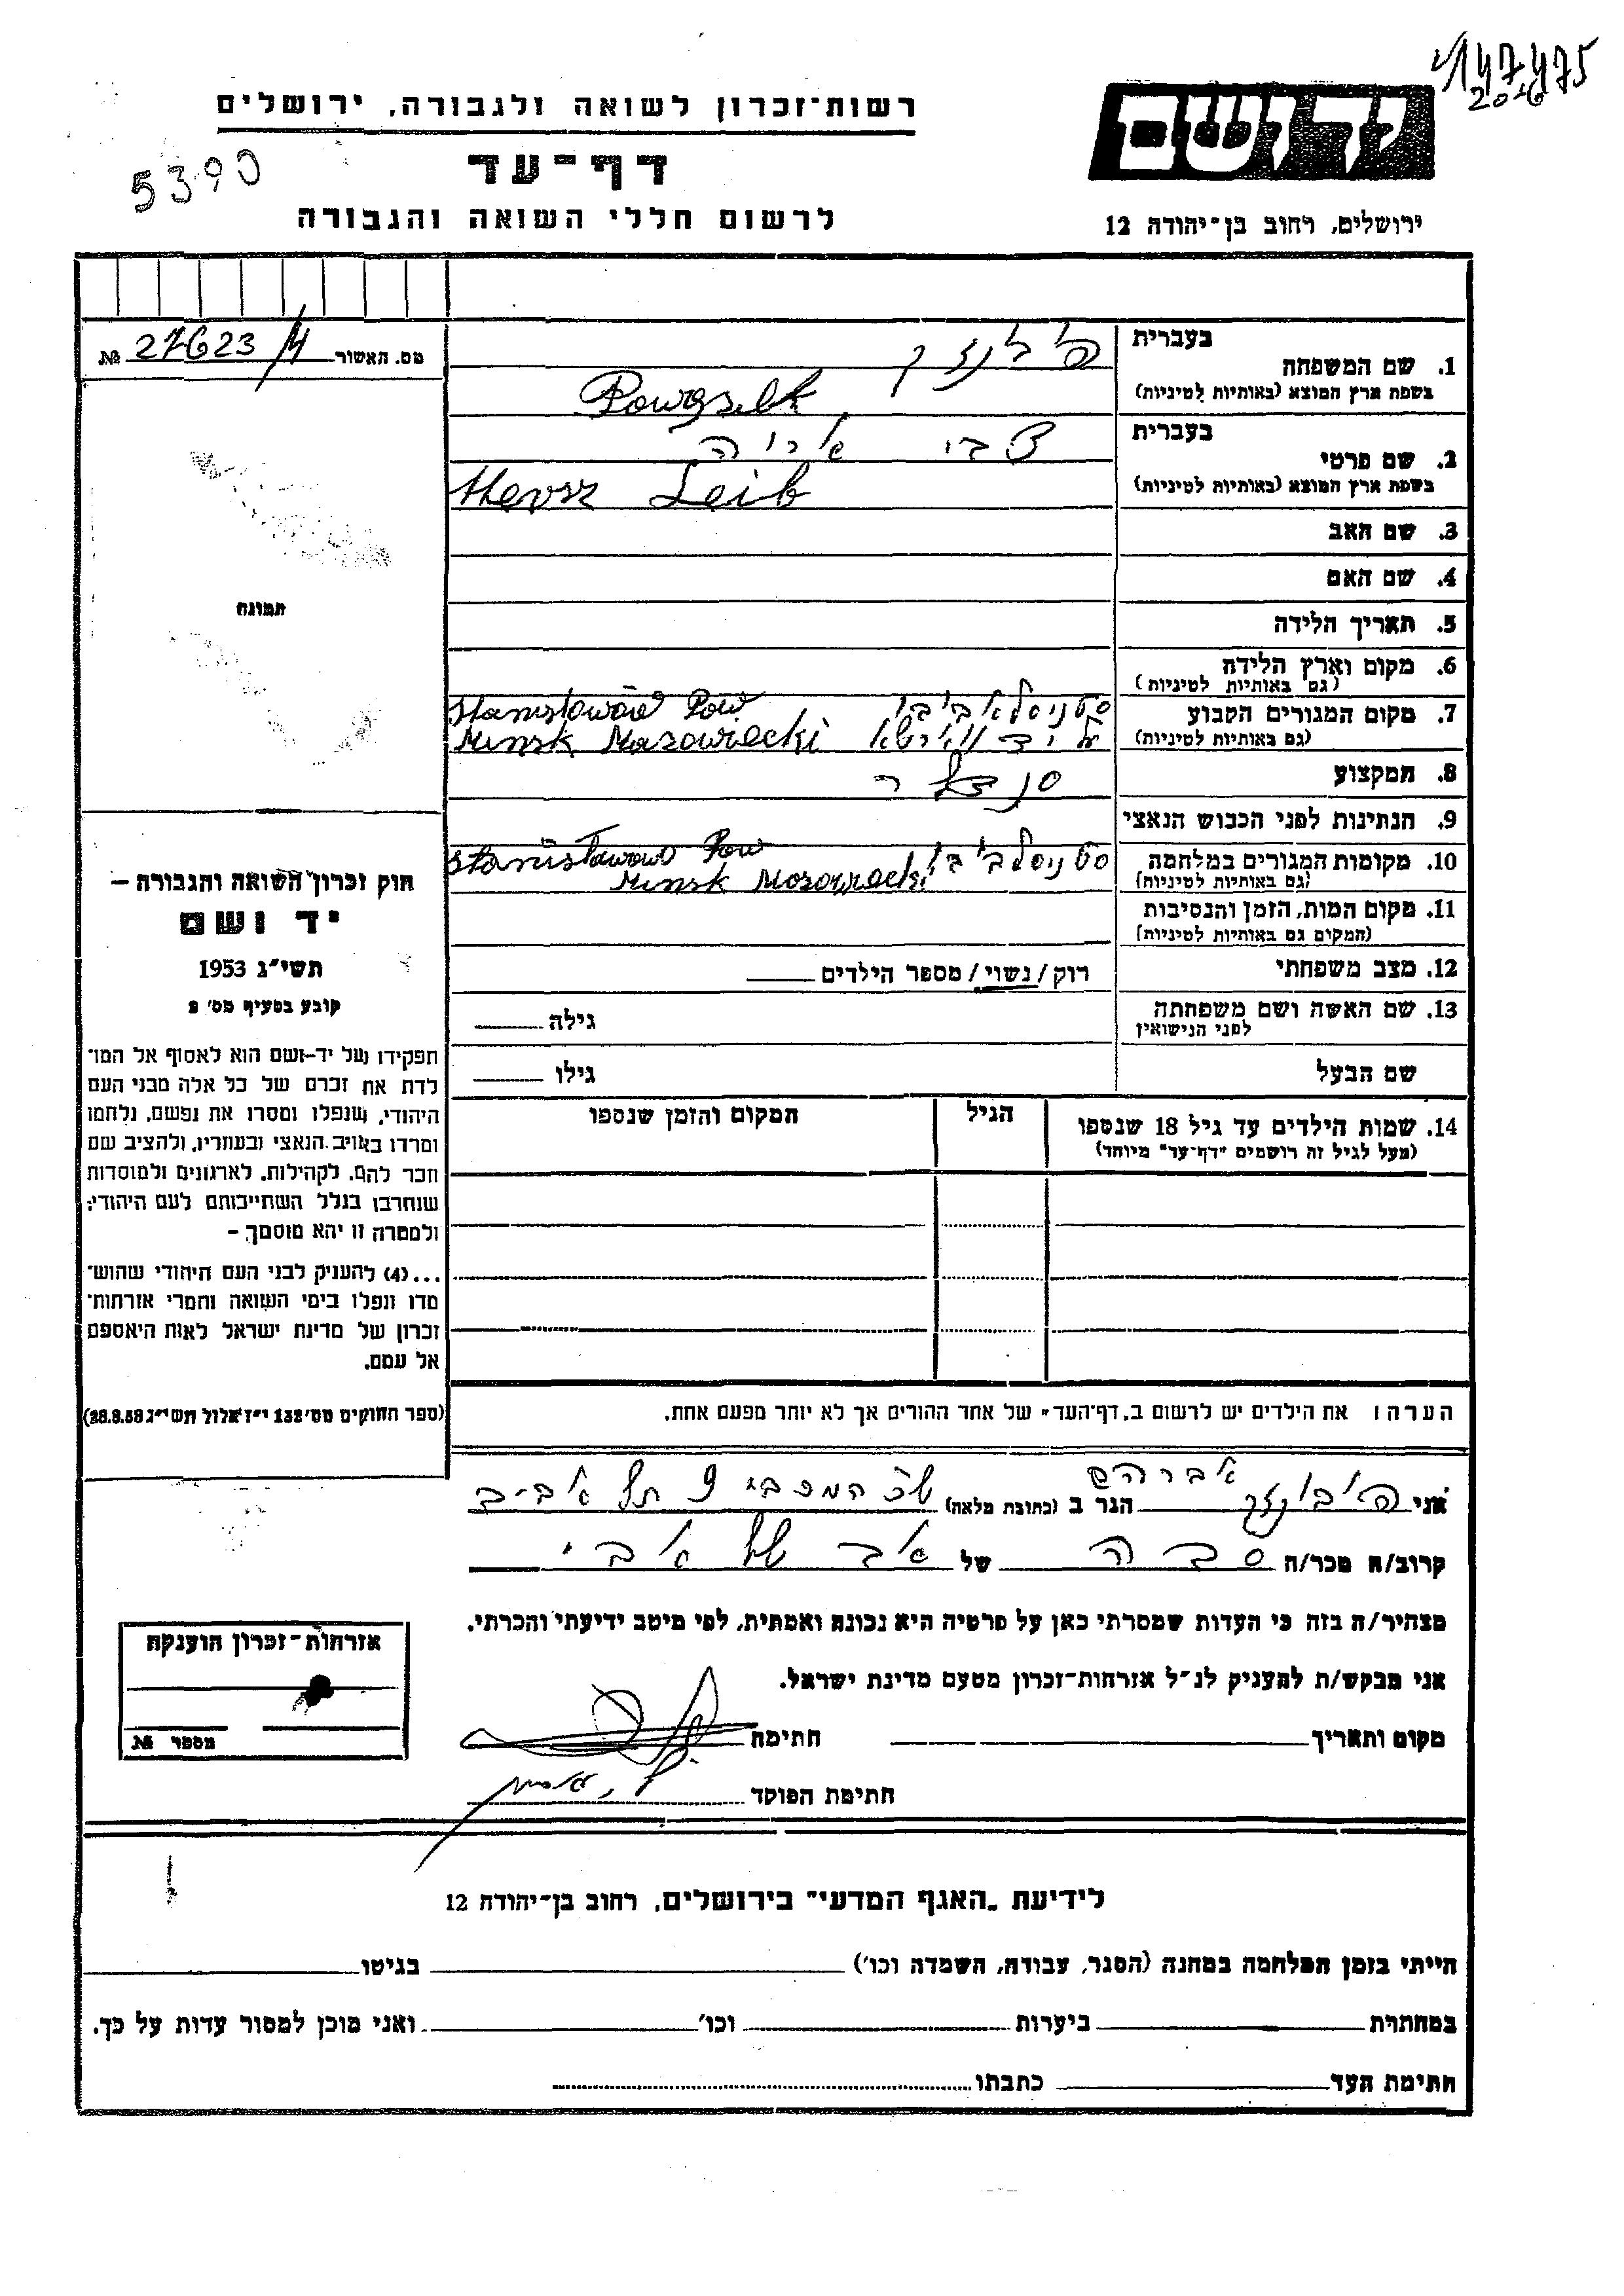 147475
רשות־זכרון לשואה ולגבורה, ירושלים
דף־עד
5390
לרשום חללי השואה והגבורה
ירושלים, רחוב בן־יהודה 12
מס. האשור № 27623/4
בעברית
1. שם המשפחה
בשפת ארץ המוצא (באותיות לטיניות)
בעברית צבי אריה
2. שם פרטי
בשפת ארץ המוצא (באותיות לטיניות) Hersz Leib
3. שם האב
4. שם האם
תמונה
5. תאריך הלידה
6. מקום וארץ הלידה
(גם באותיות לטיניות)
7. מקום המגורים הקבוע Stanisławów Pow
(גם באותיות לטיניות) על יד ווארשא Minsk Mazowiecki
8. המקצוע סנדלר
9. הנתינות לפני הכבוש הנאצי
10. מקומות המגורים במלחמה Stanisławowo Pow
(גם באותיות לטיניות) Minsk Mazowiecki
11. מקום המות, הזמן והנסיבות
(המקום גם באותיות לטיניות)
12. מצב משפחתי רוק/נשוי/ מספר הילדים
13. שם האשה ושם משפחתה
לפני הנישואין גילה
שם הבעל גילו
14. שמות הילדים עד גיל 18 שנספו הגיל המקום והזמן שנספו
(מעל לגיל זה רושמים "דף־עד" מיוחד)
חוק זכרון השואה והגבורה –
יד ושם
תשי"ג 1953
קובע בסעיף מס' 2
תפקידו של יד-ושם הוא לאסוף אל המו־
לדת את זכרם של כל אלה מבני העם
היהודי, שנפלו ומסרו את נפשם, נלחמו
ומרדו באויב הנאצי ובעוזריו, ולהציב שם
וזכר להם, לקהילות, לארגונים ולמוסדות
שנחרבו בגלל השתייכותם לעם היהודי;
ולמטרה זו יהא מוסמך –
...(4) להעניק לבני העם היהודי שהוש־
מדו ונפלו בימי השואה והמרי אזרחות־
זכרון של מדינת ישראל לאות היאספם
אל עמם.
(ספר החוקים מס' 132 י"ז אלול תשי"ג 28.8.53)
הערה: את הילדים יש לרשום ב„דף־העד" של אחד ההורים אך לא יותר מפעם אחת.
אני אברהם הגר ב (כתובת מלאה) המכבי 9 תל אביב
קרוב/ה מכר/ה של אב של אבי
מצהיר/ה בזה כי העדות שמסרתי כאן על פרטיה היא נכונה ואמתית, לפי מיטב ידיעתי והכרתי.
אני מבקש/ת להעניק לנ"ל אזרחות־זכרון מטעם מדינת ישראל.
מקום ותאריך חתימה
חתימת הפוקד
אזרחות־זכרון הוענקה
מספר №
לידיעת „האגף המדעי" בירושלים, רחוב בן־יהודה 12
הייתי בזמן המלחמה במחנה (הסגר, עבודה, השמדה וכו') בגיטו
במחתרת ביערות וכו' ואני מוכן למסור עדות על כך.
חתימת העד כתבתו